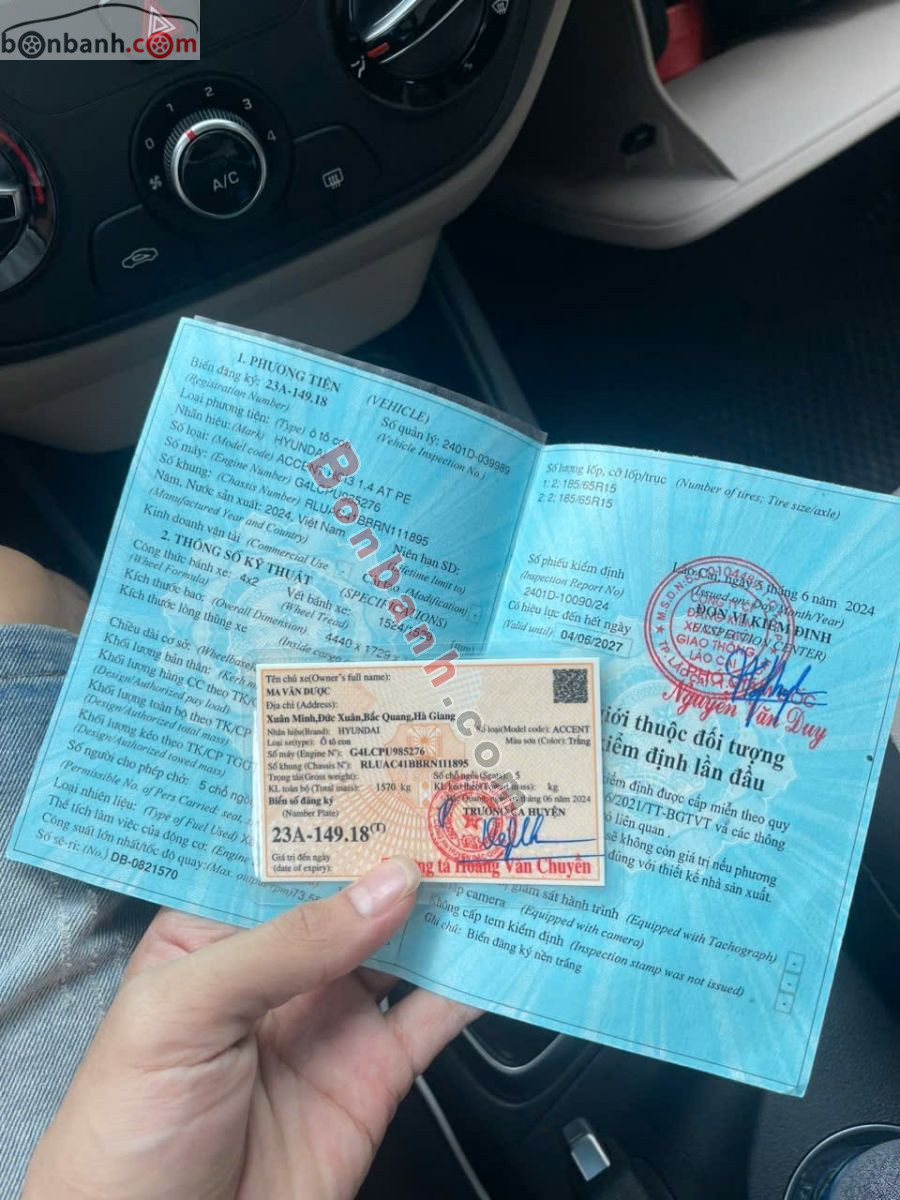 bonbanh.com
0 1 2 3 4
A/C
1. PHƯƠNG TIỆN (VEHICLE)
Biển đăng ký: 23A-149.18
(Registration Number)
Số quản lý: 2401D-039989
(Vehicle Inspection No.)
Loại phương tiện: (Type) Ô tô con
Nhãn hiệu: (Mark) HYUNDAI
Số loại: (Model code) ACCENT 1.4 AT PE
Số máy: (Engine Number) G4LCPU985276
Số khung: (Chassis Number) RLUAC41BBRN111895
Năm, Nước sản xuất: 2024, Việt Nam
Niên hạn SD:
(Manufactured Year and Country)
(Lifetime limit to)
Kinh doanh vận tải (Commercial Use
Cải tạo (Modification)
2. THÔNG SỐ KỸ THUẬT (SPECIFICATIONS)
Công thức bánh xe: 4x2
Vết bánh xe:
(Wheel Formula)
(Wheel Tread)
(mm)
Kích thước bao: (Overall Dimension) 4440 x 1729 x
Kích thước lòng thùng xe
(Inside cargo
Chiều dài cơ sở: (Wheelbase)
Khối lượng bản thân: (Kerb m
Khối lượng hàng CC theo TK/CP
(Design/Authorized pay load)
Khối lượng toàn bộ theo TK/CP
(Design/Authorized total mass)
Khối lượng kéo theo TK/CP TGGT
(Design/Authorized towed mass)
Số người cho phép chở: 5 chỗ ngồi
(Permissible No. of Pers Carried: seat,
Loại nhiên liệu: (Type of Fuel Used)
Thể tích làm việc của động cơ: (Engine
Công suất lớn nhất/tốc độ quay: (Max. output/rpm) 73.55
Số sê-ri: (No.) DB-0821570
Số lượng lốp, cỡ lốp/trục (Number of tires; Tire size/axle)
1: 2; 185/65R15
2: 2; 185/65R15
Số phiếu kiểm định
(Inspection Report No)
2401D-10090/24
Có hiệu lực đến hết ngày
(Valid until) 04/06/2027
Lào Cai, ngày 5 tháng 6 năm 2024
(Issued on: Day/Month/Year)
ĐƠN VỊ KIỂM ĐỊNH
(INSPECTION CENTER)
CÔNG TY CP
ĐĂNG KIỂM
XE CƠ GIỚI
GIAO THÔNG
LÀO CAI
Nguyễn Văn Duy
giới thuộc đối tượng
kiểm định lần đầu
kiểm định được cấp miễn theo quy
6/2021/TT-BGTVT và các thông
ó liên quan.
sẽ không còn giá trị nếu phương
đúng với thiết kế nhà sản xuất.
giám sát hành trình (Equipped with Tachograph)
ắp camera (Equipped with camera)
Không cấp tem kiểm định (Inspection stamp was not issued)
Ghi chú: Biển đăng ký nền trắng
Tên chủ xe(Owner's full name):
MA VĂN DƯỢC
Địa chỉ (Address):
Xuân Minh,Đức Xuân,Bắc Quang,Hà Giang
Nhãn hiệu(Brand): HYUNDAI
Số loại(Model code): ACCENT
Loại xe(type): Ô tô con
Màu sơn (Color): Trắng
Số máy (Engine N°): G4LCPU985276
Số khung (Chassis N°): RLUAC41BBRN111895
Trọng tải(Gross weight):
Số chỗ ngồi(Seats): 5
KL toàn bộ (Total mass): 1570 kg
kg
Biển số đăng ký
tháng 06 năm 2024
(Number Plate)
TRƯỞNG CA HUYỆN
23A-149.18(T)
Giá trị đến ngày
(date of expiry):
tá Hoàng Văn Chuyển
Bonbanh.com